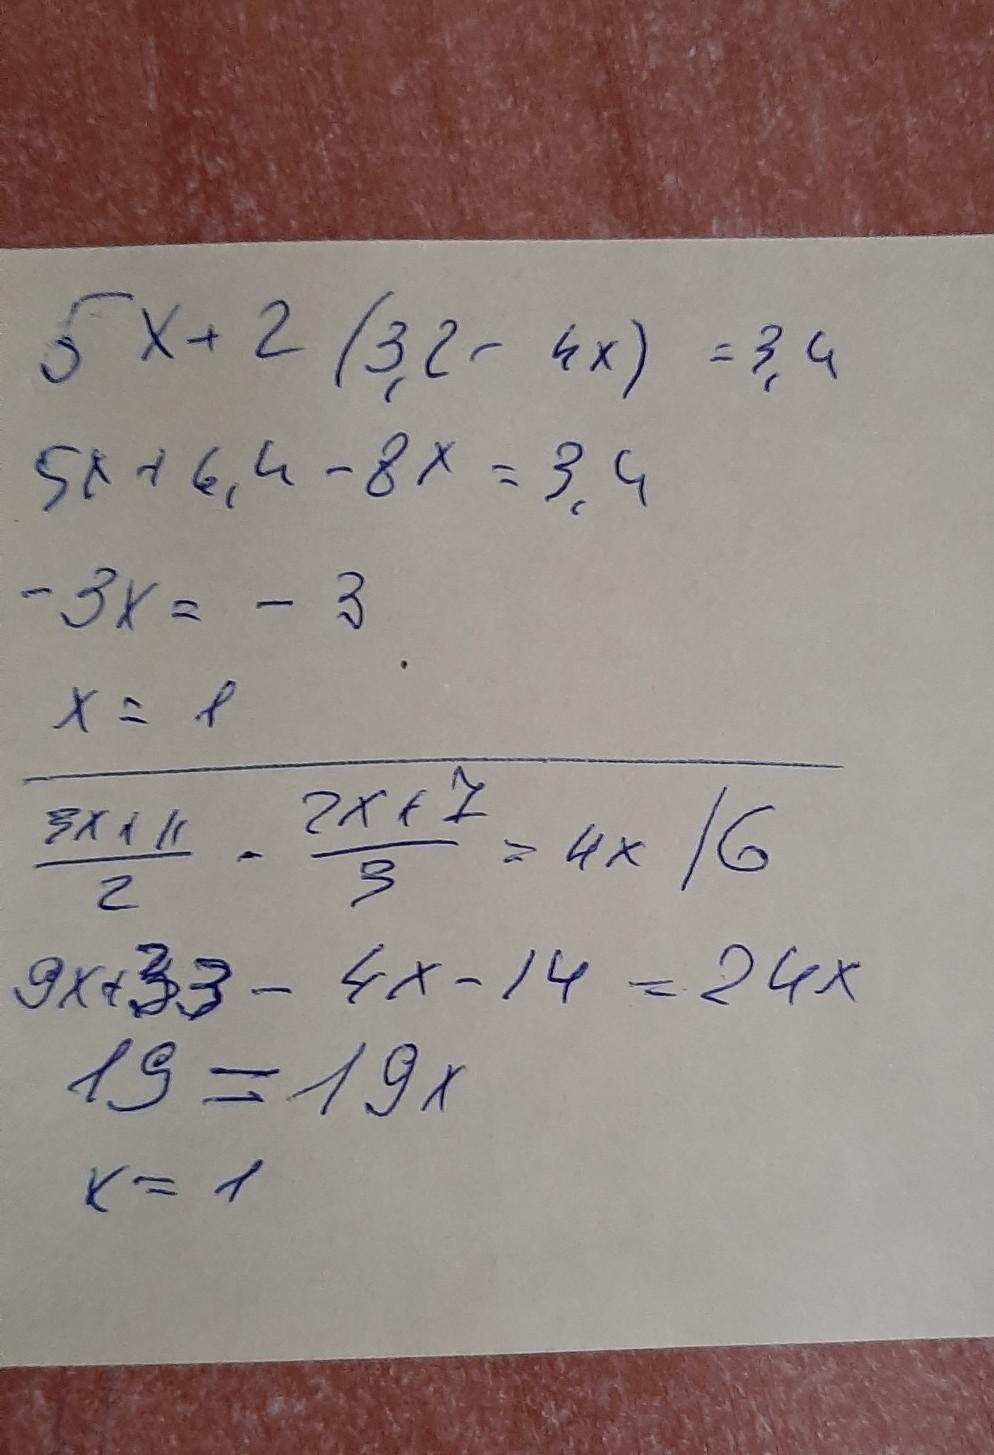 5x + 2 (3,2 - 4x) = 3,4
5x + 6,4 - 8x = 3,4
-3x = - 3
x = 1
3x+11/2 - 2x+7/3 = 4x /6
9x+33 - 4x - 14 = 24x
19 = 19x
x = 1